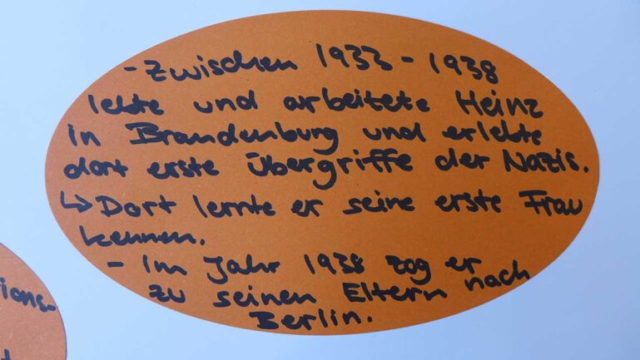 - Zwischen 1933 - 1938
lebte und arbeitete Heinz
in Brandenburg und erlebte
dort erste Übergriffe der Nazis.
↳ Dort lernte er seine erste Frau
kennen.
- Im Jahr 1938 zog er
zu seinen Eltern nach
Berlin.
ions-